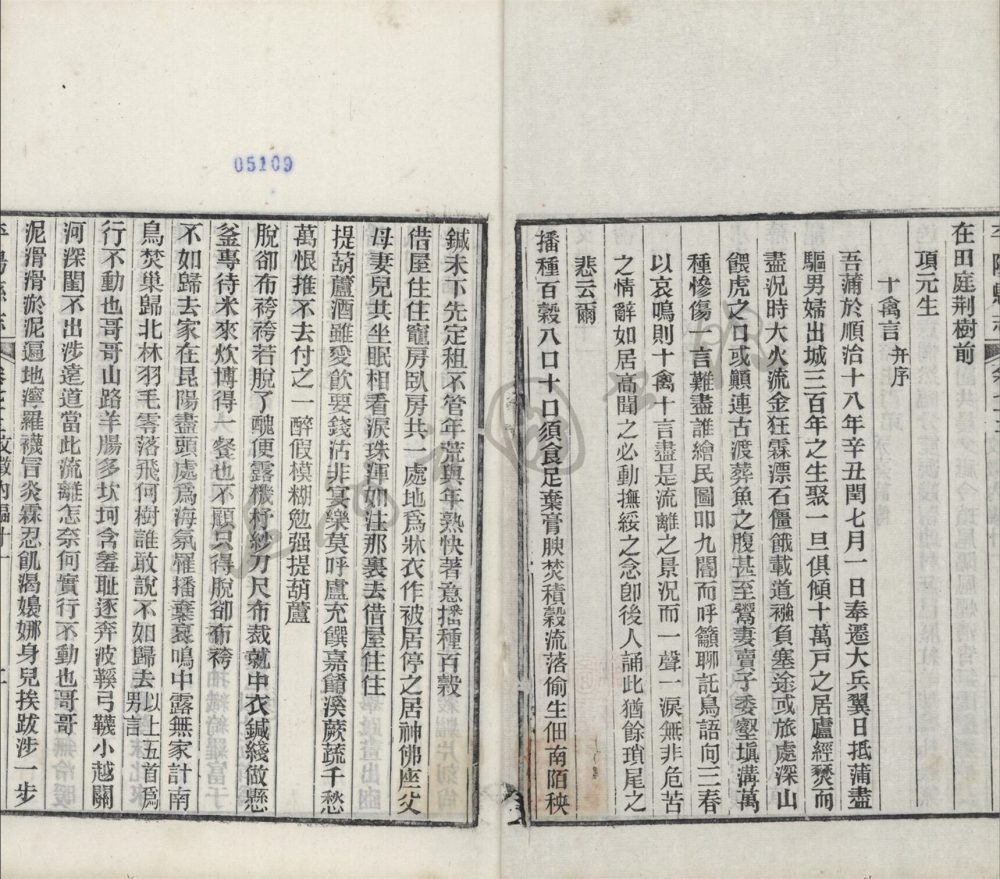 05109
在田庭荆樹前
項元生
十禽言 并序
吾蒲於順治十八年辛丑閏七月一日奉遷大兵翼日抵蒲盡
驅男婦出城三百年之生聚一旦俱傾十萬戸之居廬經燹而
盡況時大火流金狂霖漂石僵餓載道襁負塞途或旅處深山
餵虎之口或顚連古渡葬魚之腹甚至鬻妻賣子委壑塡溝萬
種慘傷一言難盡誰繪民圖叩九閽而呼籲聊託鳥語向三春
以哀鳴則十禽十言盡是流離之景況而一聲一淚無非危苦
之情辭如居高聞之必動撫綏之念卽後人誦此猶餘瑣尾之
悲云爾
播種百穀八口十口須食足葉膏腴焚積穀流落偷生佃南陌秧
鍼未下先定租不管年荒與年熟快著意播種百穀
借屋住住竈房臥房共一處地爲牀衣作被居停之居神佛座父
母妻兒共坐眠相看淚珠渾如注那裏去借屋住住
提葫蘆酒雖愛飲要錢沽非宴樂莫呼盧充饌嘉餚溪蕨蔬千愁
萬恨推不去付之一醉假模糊勉强提葫蘆
脫卻布袴袴若脫了醜便露機杼紗刀尺布裁就中衣鍼綫做懸
釜專待米來炊博得一餐也不顧只得脫卻布袴
不如歸去家在昆陽盡頭處爲海氛罹播棄哀鳴中露無家計南
鳥焚巢歸北林羽毛零落飛何樹誰敢說不如歸去 以上五首爲男言
行不動也哥哥山路羊腸多坎坷含羞耻逐奔波鞵弓韈小越關
河深閨不出涉遠道當此流離怎奈何實行不動也哥哥
泥滑滑淤泥逼地溼羅襪冒炎霖忍飢渴嬝娜身兒挨跋涉一步